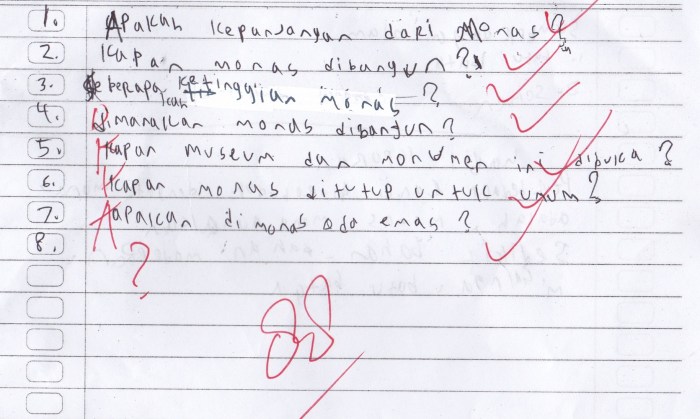 1. Apakah kepanjangan dari Monas?
2. Kapan monas dibangun?
3. Seberapakah ketinggian monas?
4. Dimanakan monas dibangun?
5. Kapan museum dan monumen ini dibuka?
6. Kapan monas ditutup untuk umum?
7. Aapakan di monas ada emas?
8.
?
88